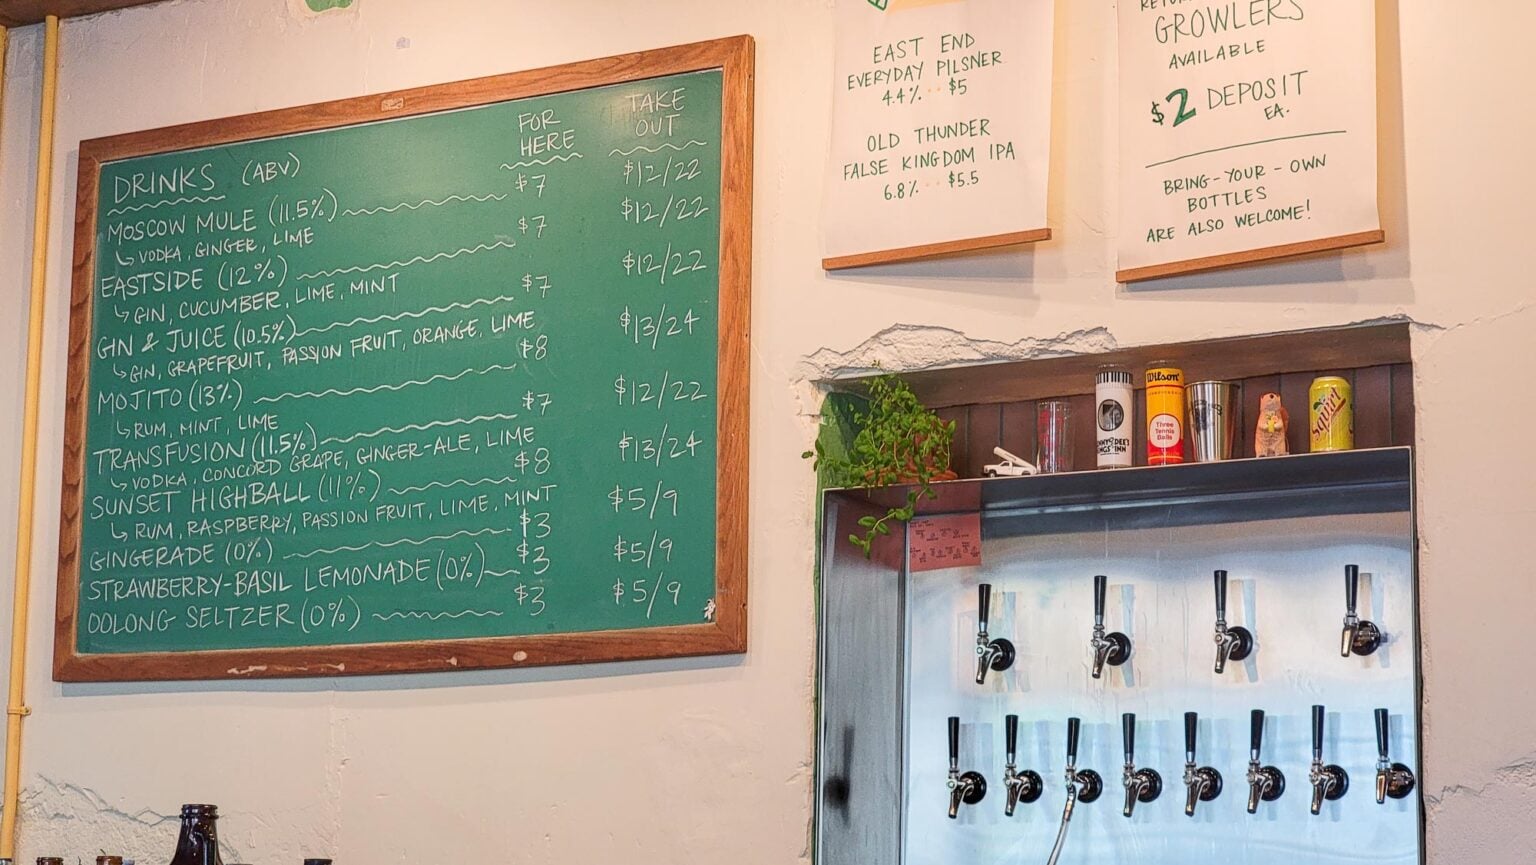 DRINKS (ABV) FOR HERE TAKE OUT
MOSCOW MULE (11.5%) $7 $12/22
VODKA, GINGER, LIME
EASTSIDE (12%) $7 $12/22
GIN, CUCUMBER, LIME, MINT
GIN & JUICE (10.5%) $7 $12/22
GIN, GRAPEFRUIT, PASSION FRUIT, ORANGE, LIME
MOJITO (13%) $8 $13/24
RUM, MINT, LIME
TRANSFUSION (11.5%) $7 $12/22
VODKA, CONCORD GRAPE, GINGER-ALE, LIME
SUNSET HIGHBALL (11%) $8 $13/24
RUM, RASPBERRY, PASSION FRUIT, LIME, MINT
GINGERADE (0%) $3 $5/9
STRAWBERRY-BASIL LEMONADE (0%) $3 $5/9
OOLONG SELTZER (0%) $3 $5/9
EAST END
EVERYDAY PILSNER
4.4% $5
OLD THUNDER
FALSE KINGDOM IPA
6.8% $5.5
GROWLERS
AVAILABLE
$2 DEPOSIT
EA.
BRING-YOUR-OWN
BOTTLES
ARE ALSO WELCOME!
Wilson
Three
Tennis
Balls
Squirt